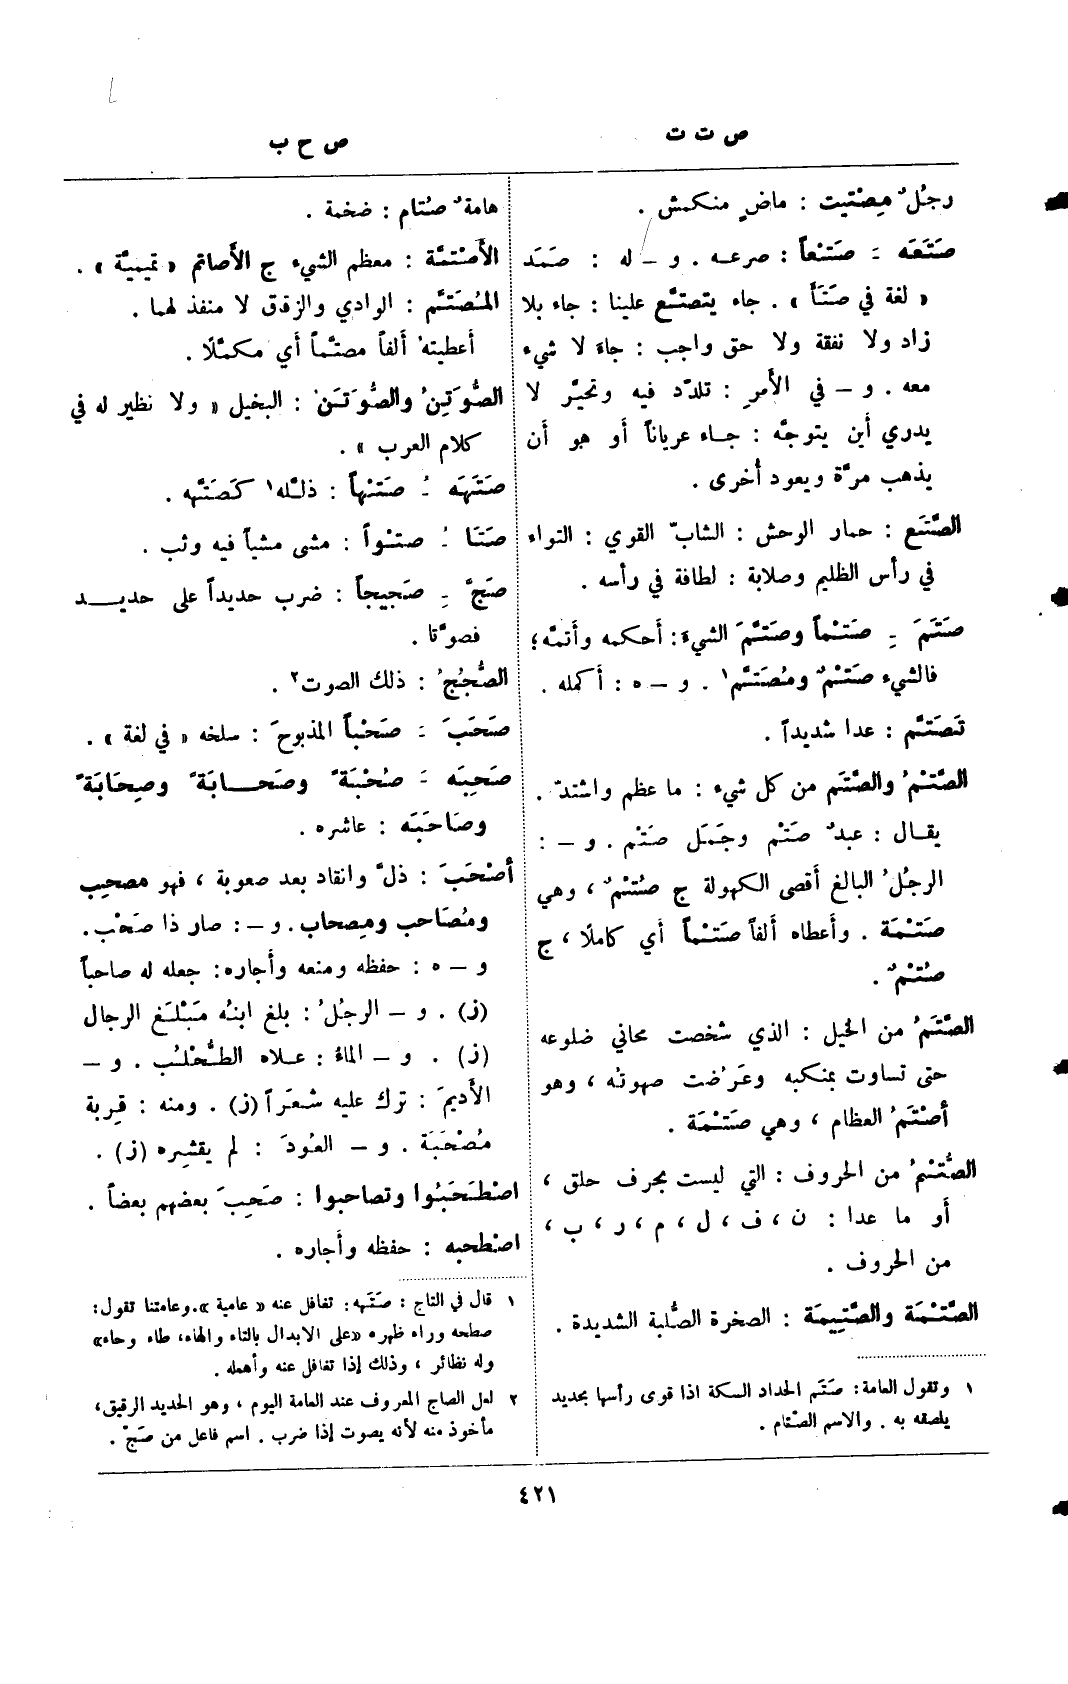 ص ت ت
ص ح ب
رجُلٌ مِصْتيت : ماضٍ منكمش .
صَتَعَه َ صَتْعاً : صرعه . و – له : صَمَد
« لغة في صَتَأَ » . جاء يتصتَّع علينا : جاء بلا
زاد ولا نفقة ولا حق واجب : جاءَ لا شيء
معه . و – في الأمرِ : تلدّد فيه وتحيَّر لا
يدري أين يتوجَّه : جاء عرياناً أو هو أن
يذهب مرَّة ويعود أخرى .
الصَّتَع : حمار الوحش : الشابّ القوي : التواء
في رأس الظليم وصلابة : لطافة في رأسه .
صَتَمَ ِ صَتْماً وصَتَّمَ الشيءَ : أحكمه وأتمَّه ؛
فالشيء صَتْمٌ ومُصَتَّم ١ . و – ه : أكمله .
تَصَتَّم : عدا شديداً .
الصَّتْمُ والصَّتَم من كل شيء : ما عظم واشتدّ .
يقال : عبدٌ صَتْم وجَمَل صَتْم . و – :
الرجُلُ البالغ أقصى الكهولة ج صُتْمٌ ، وهي
صَتْمَة . وأعطاه ألفاً صَتْماً أي كاملًا ، ج
صُتْمٌ .
الصَّتَمُ من الخيل : الذي شخصت محاني ضلوعه
حتى تساوت بمنكبه وعَرُضت صهوتُه ، وهو
أصْتَمُ العظام ، وهي صَتْمَة .
الصُّتْمُ من الحروف : التي ليست بحرف حلق ،
أو ما عدا : ن ، ف ، ل ، م ، ر ، ب ،
من الحروف .
الصَّتْمَة والصَّتِيمَة : الصخرة الصُّلبة الشديدة .
١ وتقول العامة : صَتَم الحداد السكة اذا قوى رأسها بحديد
يلصقه به . والاسم الصْتام .
هامةٌ صُتام : ضخمة .
الأُصْتمَّة : معظم الشيء ج الأَصاتم « تميميَّة » .
المُصَتَّم : الوادي والزقاق لا منفذ لهما .
أعطيتهُ ألفاً مصتَّماً أي مكمَّلًا .
الصُّوَتِنُ والصُّوَتَنُ : البخيل « ولا نظير له في
كلام العرب » .
صَتَهَه ُ صَتْهاً : ذلَّله ١ كَصَتَّهه .
صَتَا ُ صتْواً : مشى مشياً فيه وثب .
صَجَّ ِ صَجيجاً : ضرب حديداً على حديد
فصوَّتا .
الصُّجُجُ : ذلك الصوت ٢ .
صَحَبَ َ صَحْباً المذبوحَ : سلخه « في لغة » .
صَحِبَه َ صُحْبَةً وصَحابَةً وصِحَابَةً
وصَاحَبَه : عاشره .
أصْحَبَ : ذلَّ وانقاد بعد صعوبة ، فهو مصحِب
ومُصَاحب ومِصحاب . و – : صار ذا صَحْب .
و – ه : حفظه ومنعه وأجاره : جعله له صاحباً
(ز) . و – الرجُلُ : بلغ ابنُه مَبْلَغ الرجال
(ز) . و – الماءُ : علاه الطُّحْلُب . و –
الأديمَ : ترك عليه شعَراً (ز) . ومنه : قِربة
مُصْحَبَة . و – العُودَ : لم يقشِره (ز) .
اصْطَحَبُوا وتصاحبوا : صَحِبَ بعضهم بعضاً .
اصْطحبه : حفظه وأجاره .
١ قال في التاج : صَتَهه : تغافل عنه « عامية » . وعامتنا تقول :
صطحه وراء ظهره «على الابدال بالتاء والهاء، طاء وحاء»
وله نظائر ، وذلك إذا تغافل عنه وأهمله .
٢ لعل الصاج المعروف عند العامة اليوم ، وهو الحديد الرقيق ،
مأخوذ منه لأنه يصوت إذا ضرب . اسم فاعل من صَجّ .
٤٢١